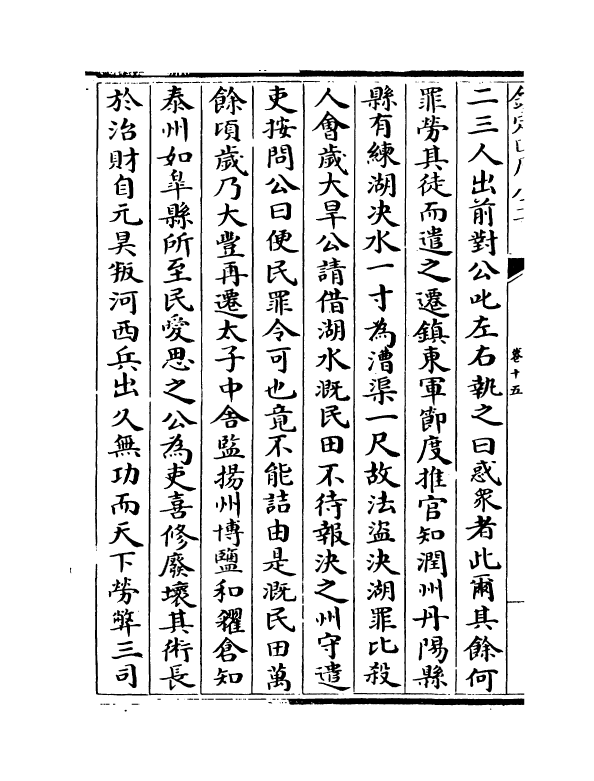 卷十五
二三人出前對公叱左右執之曰惑衆者此爾其餘何
罪勞其徒而遣之遷鎮東軍節度推官知潤州丹陽縣
縣有練湖決水一寸為漕渠一尺故法盜決湖罪比殺
人㑹歲大旱公請借湖水溉民田不待報決之州守遣
吏按問公曰便民罪令可也竟不能詰由是溉民田萬
餘頃歲乃大豐再遷太子中舍監揚州博鹽和糴倉知
泰州如臯縣所至民愛思之公為吏喜修廢壞其術長
於治財自元昊叛河西兵出久無功而天下勞弊三司